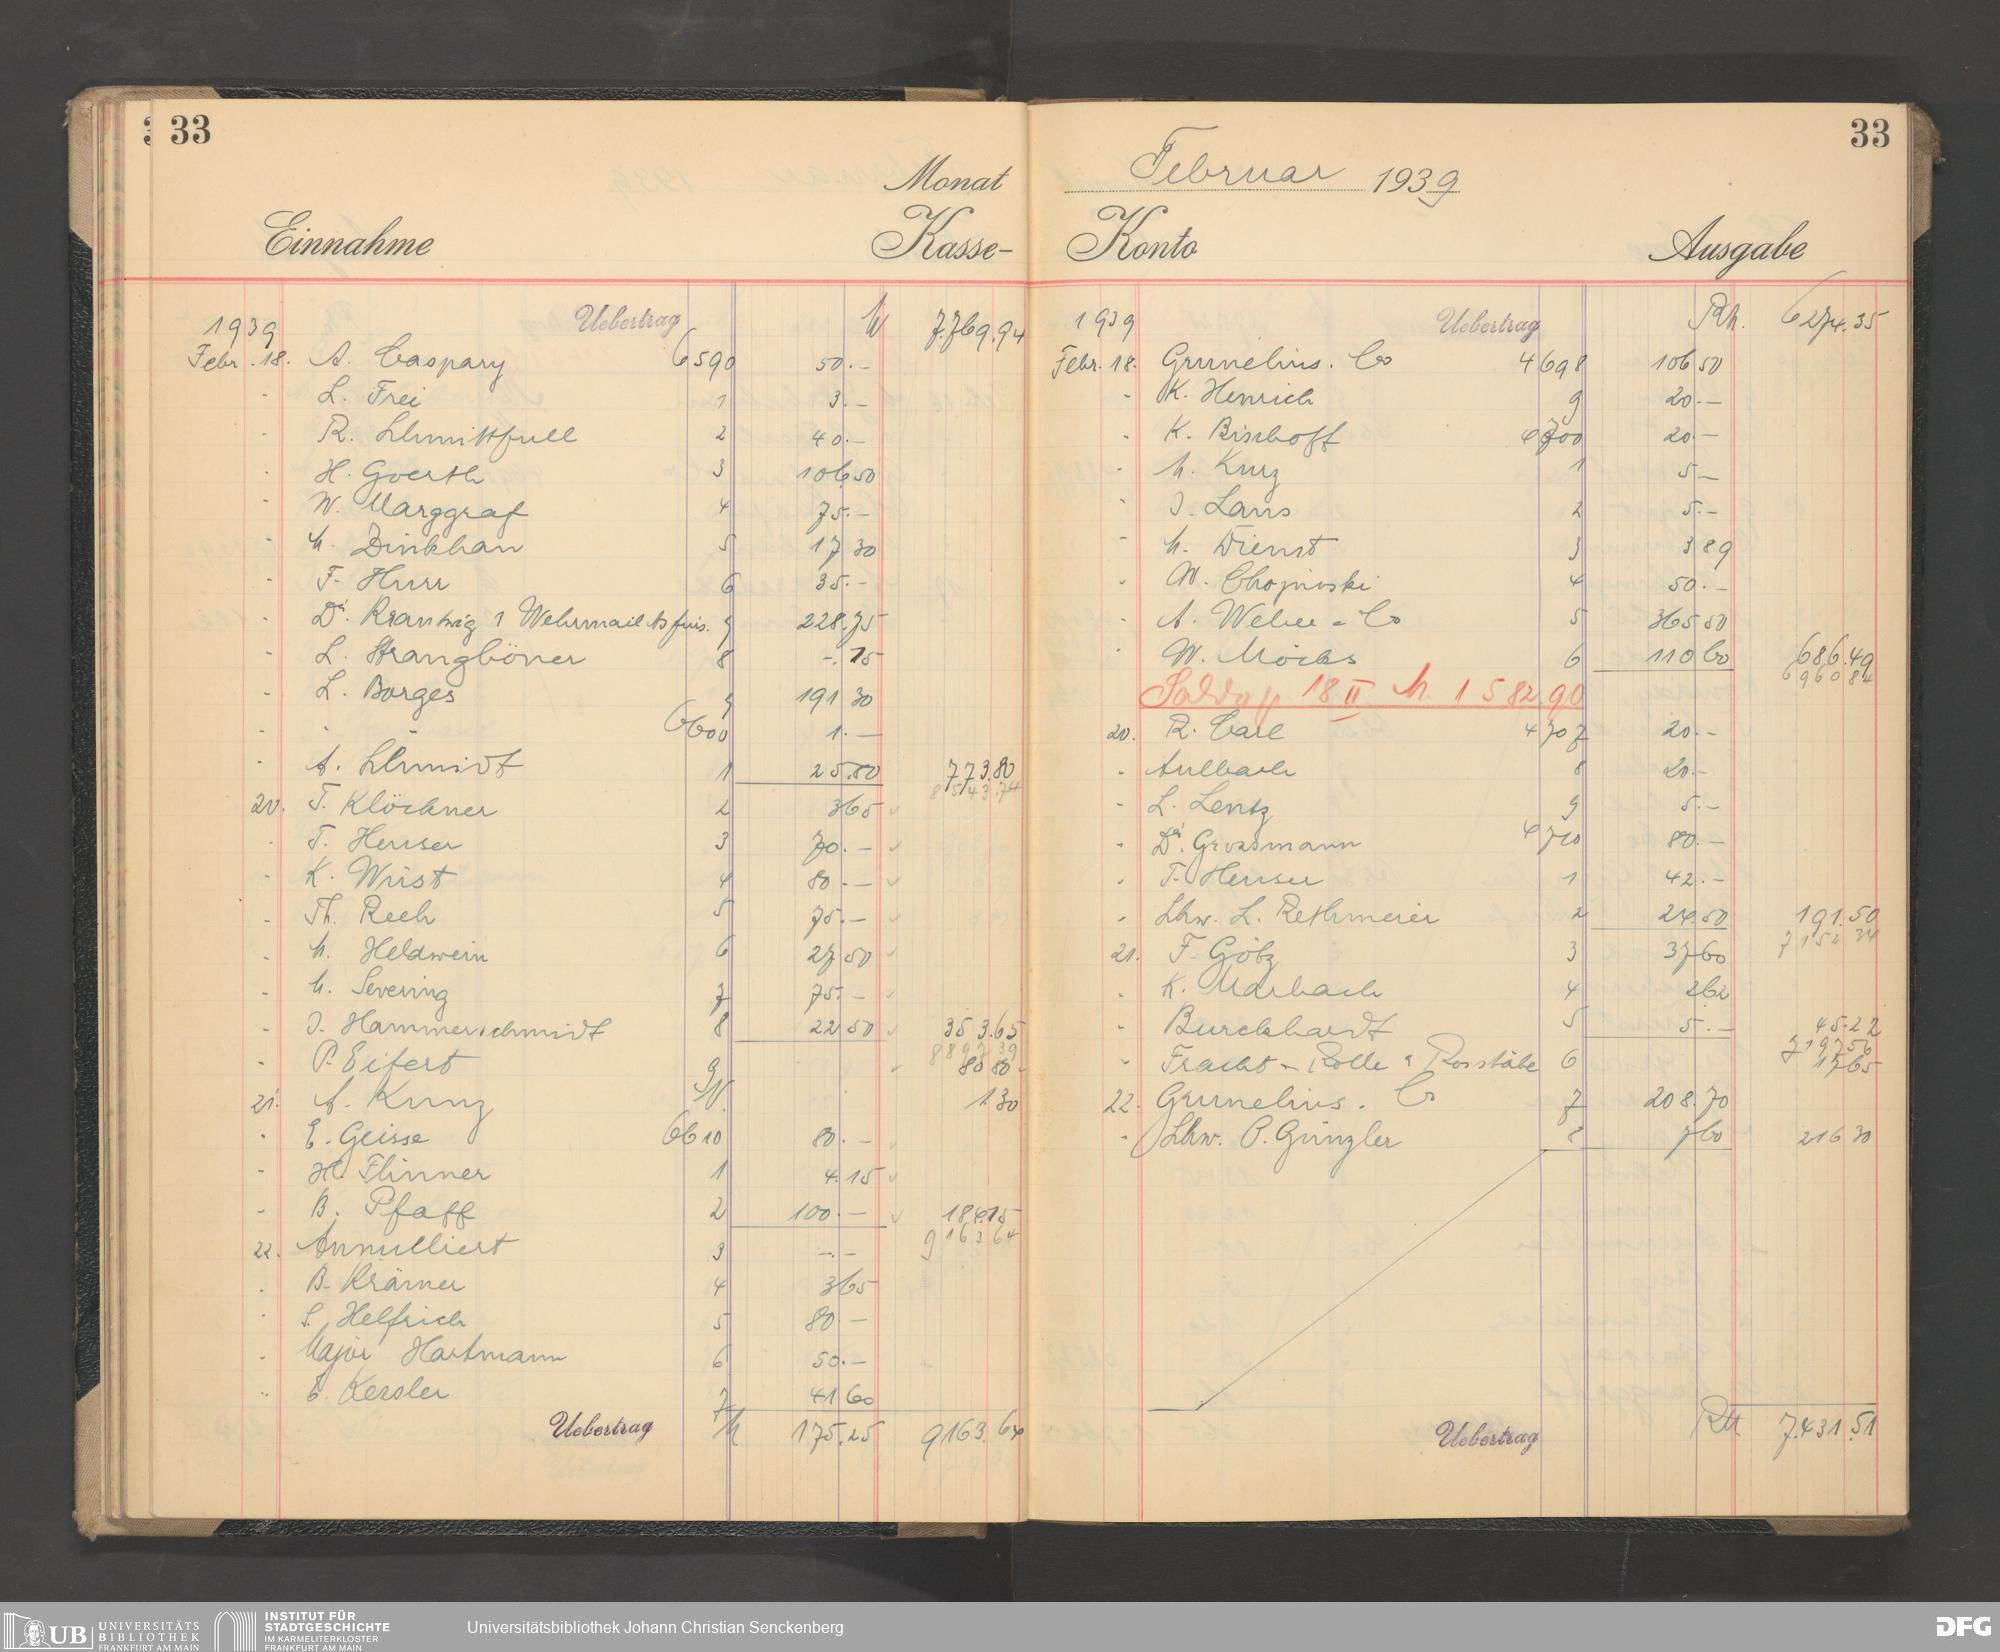 33
Monat
Einnahme
Kasse-
1939 Uebertrag M 7.769.94
Febr. 18. A. Caspary 6590 50.—
- L. Frei 1 3.—
- R. Schmittfull 2 40.—
- H. Goerth 3 106 50
- W. Marggraf 4 75.—
- M. Dinkhau 5 17 30
- F. Hurr 6 35.—
- Dr. Krantwig 7 228.75
- L. Strangböner 8 -.15
- L. Borges 9 191 30
- " 6600 1.—
- A. Schmidt 1 25.80 773.80
8543.74
20. F. Klöckner 2 3 65
- F. Heuser 3 70.—
- K. Wüst 4 80.—
- Th. Reeh 5 75.—
- M. Heldwein 6 27 50
- M. Severing 7 75.—
- J. Hammerschmidt 8 22 50 353.65
8897 39
- P. Eifert 9 80 80
21. A. Kunz 1.30
- E. Geisse 6610 80.—
- H. Flinner 1 4.15
- B. Pfaff 2 100.— 184.15
9163 64
22. Annulliert 3 -.-
- B. Krämer 4 3 65
- S. Helfrich 5 80.—
- Major Hartmann 6 50.—
- E. Kessler 7 41 60
Uebertrag M 175.25 9163.64
33
Februar 1939
Konto
Ausgabe
1939 Uebertrag RM. 6274.35
Febr. 18. Grunelius & Co 4698 106 50
- K. Henrich 9 20.—
- K. Bischoff 4700 20.—
- M. Kurz 1 5.—
- J. Laus 2 5.—
- M. Dienst 3 3 89
- W. Chojnoski 4 50.—
- A. Weber & Co 5 365 50
- W. Möcks 6 110 60 686.49
6960 84
Saldo p 18 II M. 1582.90
20. R. Carl 4707 20.—
- Aulbach 8 20.—
- L. Lentz 9 5.—
- Dr. Grossmann 4710 80.—
- F. Heuser 1 42.—
- Schw. L. Rethmeier 2 24.50 191.50
7152 34
21. F. Götz 3 37 60
- K. Marbach 4 2 62
- Burckhardt 5 5.— 45.22
7197 56
- Fracht - Rolle & Rosstäbe 6 17 65
22. Grunelius & Co 7 208.70
- Schw. P. Günzler 8 7 60 216 30
Uebertrag RM 7.431.51
UB UNIVERSITÄTS
BIBLIOTHEK
FRANKFURT AM MAIN
INSTITUT FÜR
STADTGESCHICHTE
IM KARMELITERKLOSTER
FRANKFURT AM MAIN
Universitätsbibliothek Johann Christian Senckenberg
DFG